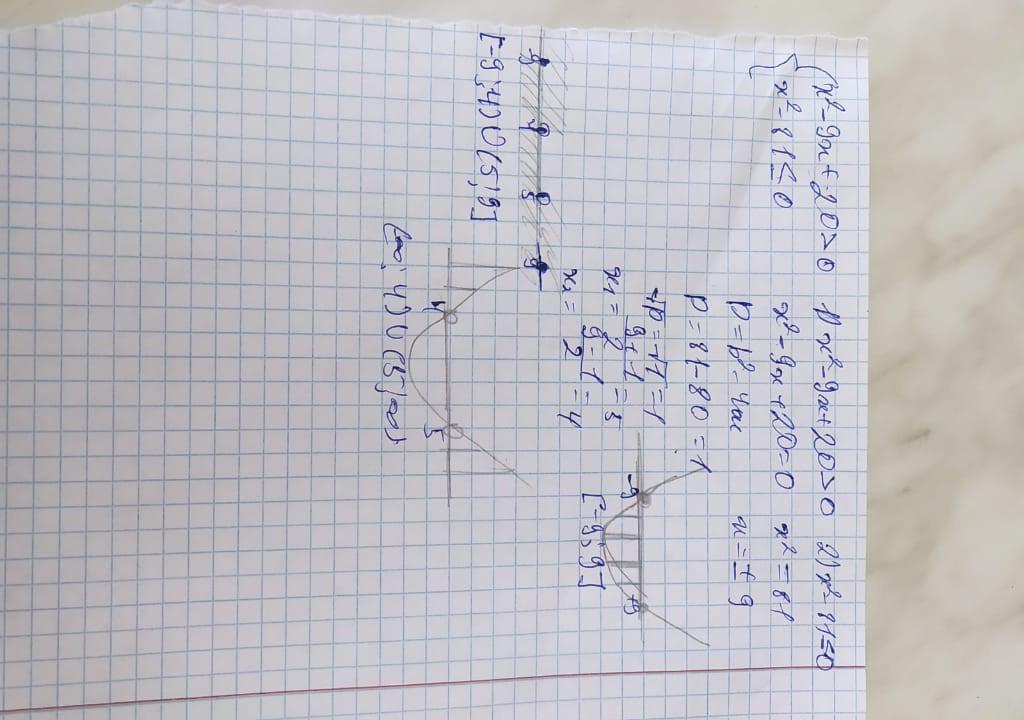 { x² - 9x + 20 > 0
{ x² - 81 ≤ 0
1) x² - 9x + 20 > 0
x² - 9x + 20 = 0
D = b² - 4ac
D = 81 - 80 = 1
√D = √1 = 1
x₁ = (9 + 1)/2 = 5
x₂ = (9 - 1)/2 = 4
4 5
(-∞; 4) ∪ (5; ∞)
2) x² - 81 ≤ 0
x² = 81
x = ± 9
-9 +9
[-9; 9]
-9 4 5 9
[-9; 4) ∪ (5; 9]